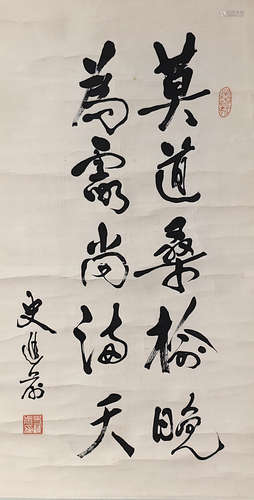 莫道桑榆晚
為霞尚满天
史進前